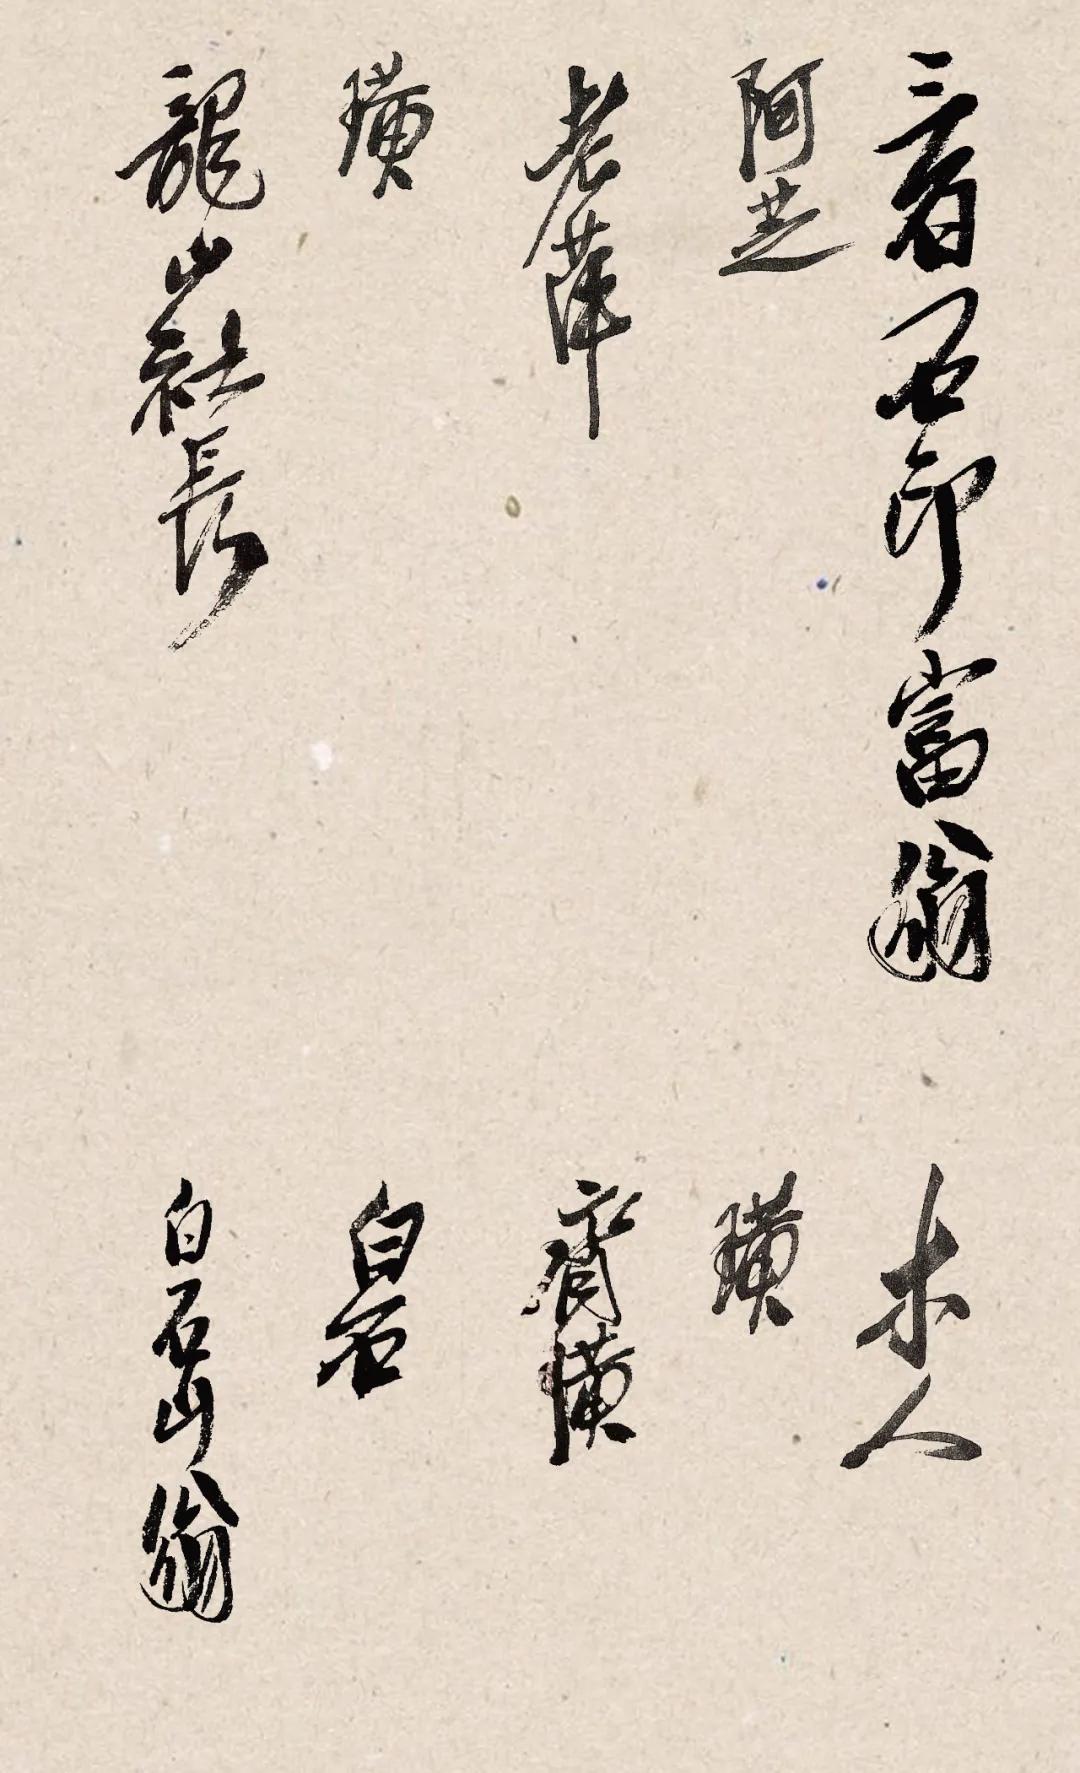 三百石印富翁
阿芝
老萍
璜
龍山社長
木人
璜
齊璜
白石
白石山翁